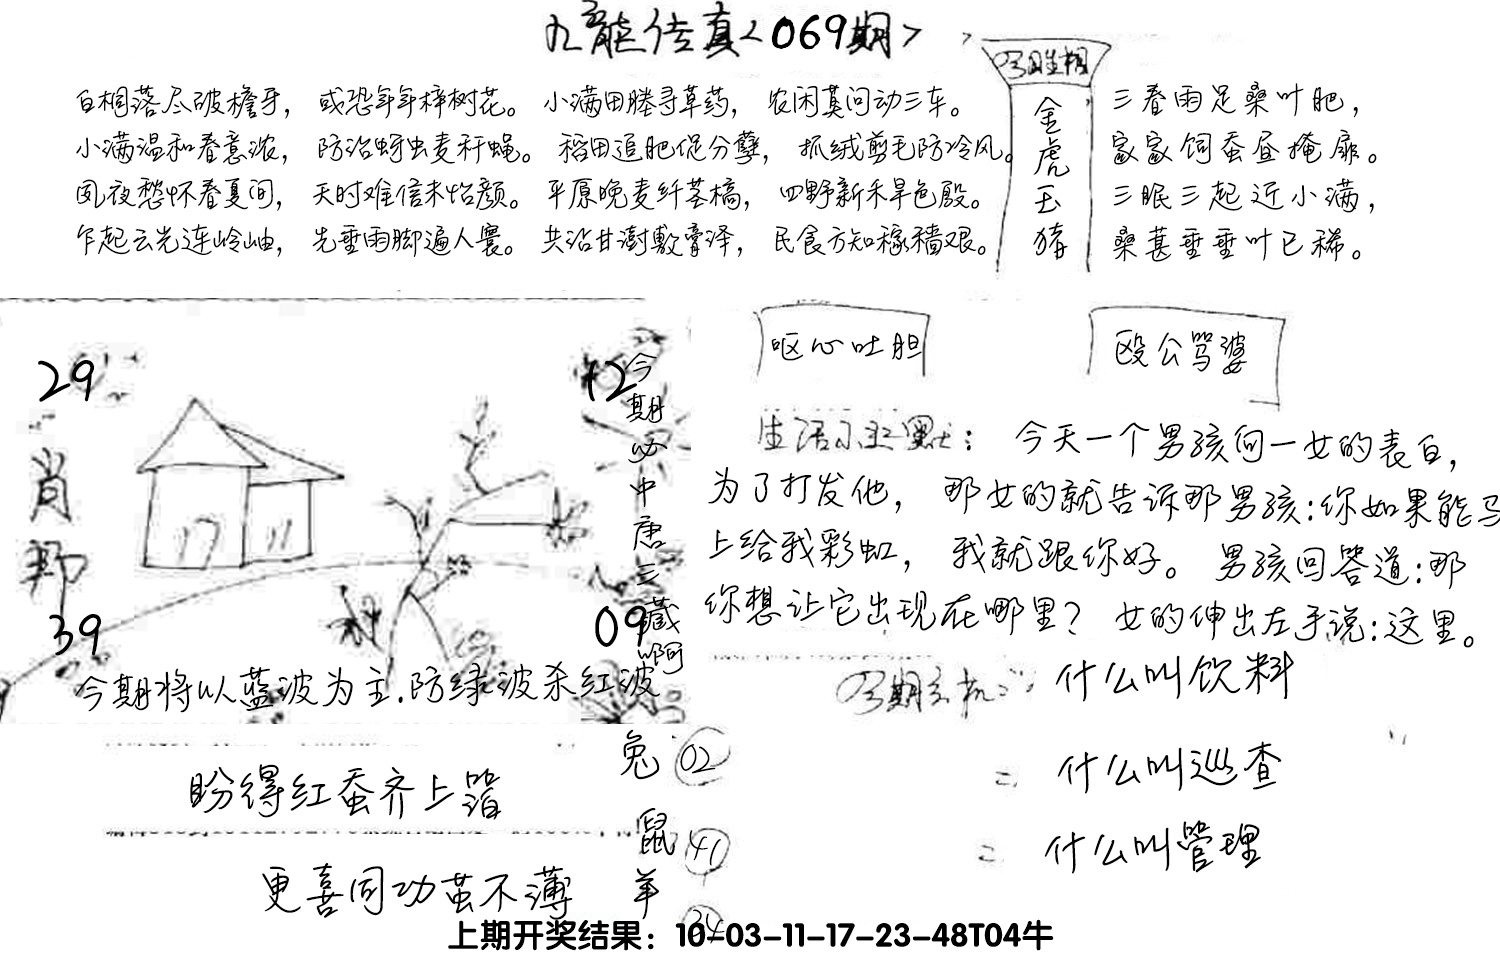 九龙传真<069期>
白桐落尽破檐牙，或恐年年梓树花。小满田塍寻草药，农闲莫问动三车。
小满温和春意浓，防治蚜虫麦秆蝇。稻田追肥促分孽，抓绒剪毛防冷风。
夙夜愁怀春夏间，天时难信未怡颜。平原晚麦纤茎槁，四野新禾旱色殷。
乍起云光连岭岫，先垂雨脚遍人寰。共沾甘澍敷膏泽，民食方知稼穑艰。
金虎玉猪
三春雨足桑叶肥，
家家饲蚕昼掩扉。
三眠三起近小满，
桑葚垂垂叶已稀。
呕心吐胆
殴公骂婆
29
12
肖
39
09
今期必中唐三藏啊
今期将以蓝波为主.防绿波杀红波
生活小幽默：今天一个男孩向一女的表白，
为了打发他，那女的就告诉那男孩：你如果能马
上给我彩虹，我就跟你好。男孩回答道：那
你想让它出现在哪里？女的伸出左手说：这里。
什么叫饮料
二 什么叫巡查
什么叫管理
盼得红蚕齐上箔
更喜同功茧不薄
兔 02
鼠 41
羊 34
上期开奖结果：10-03-11-17-23-48T04牛